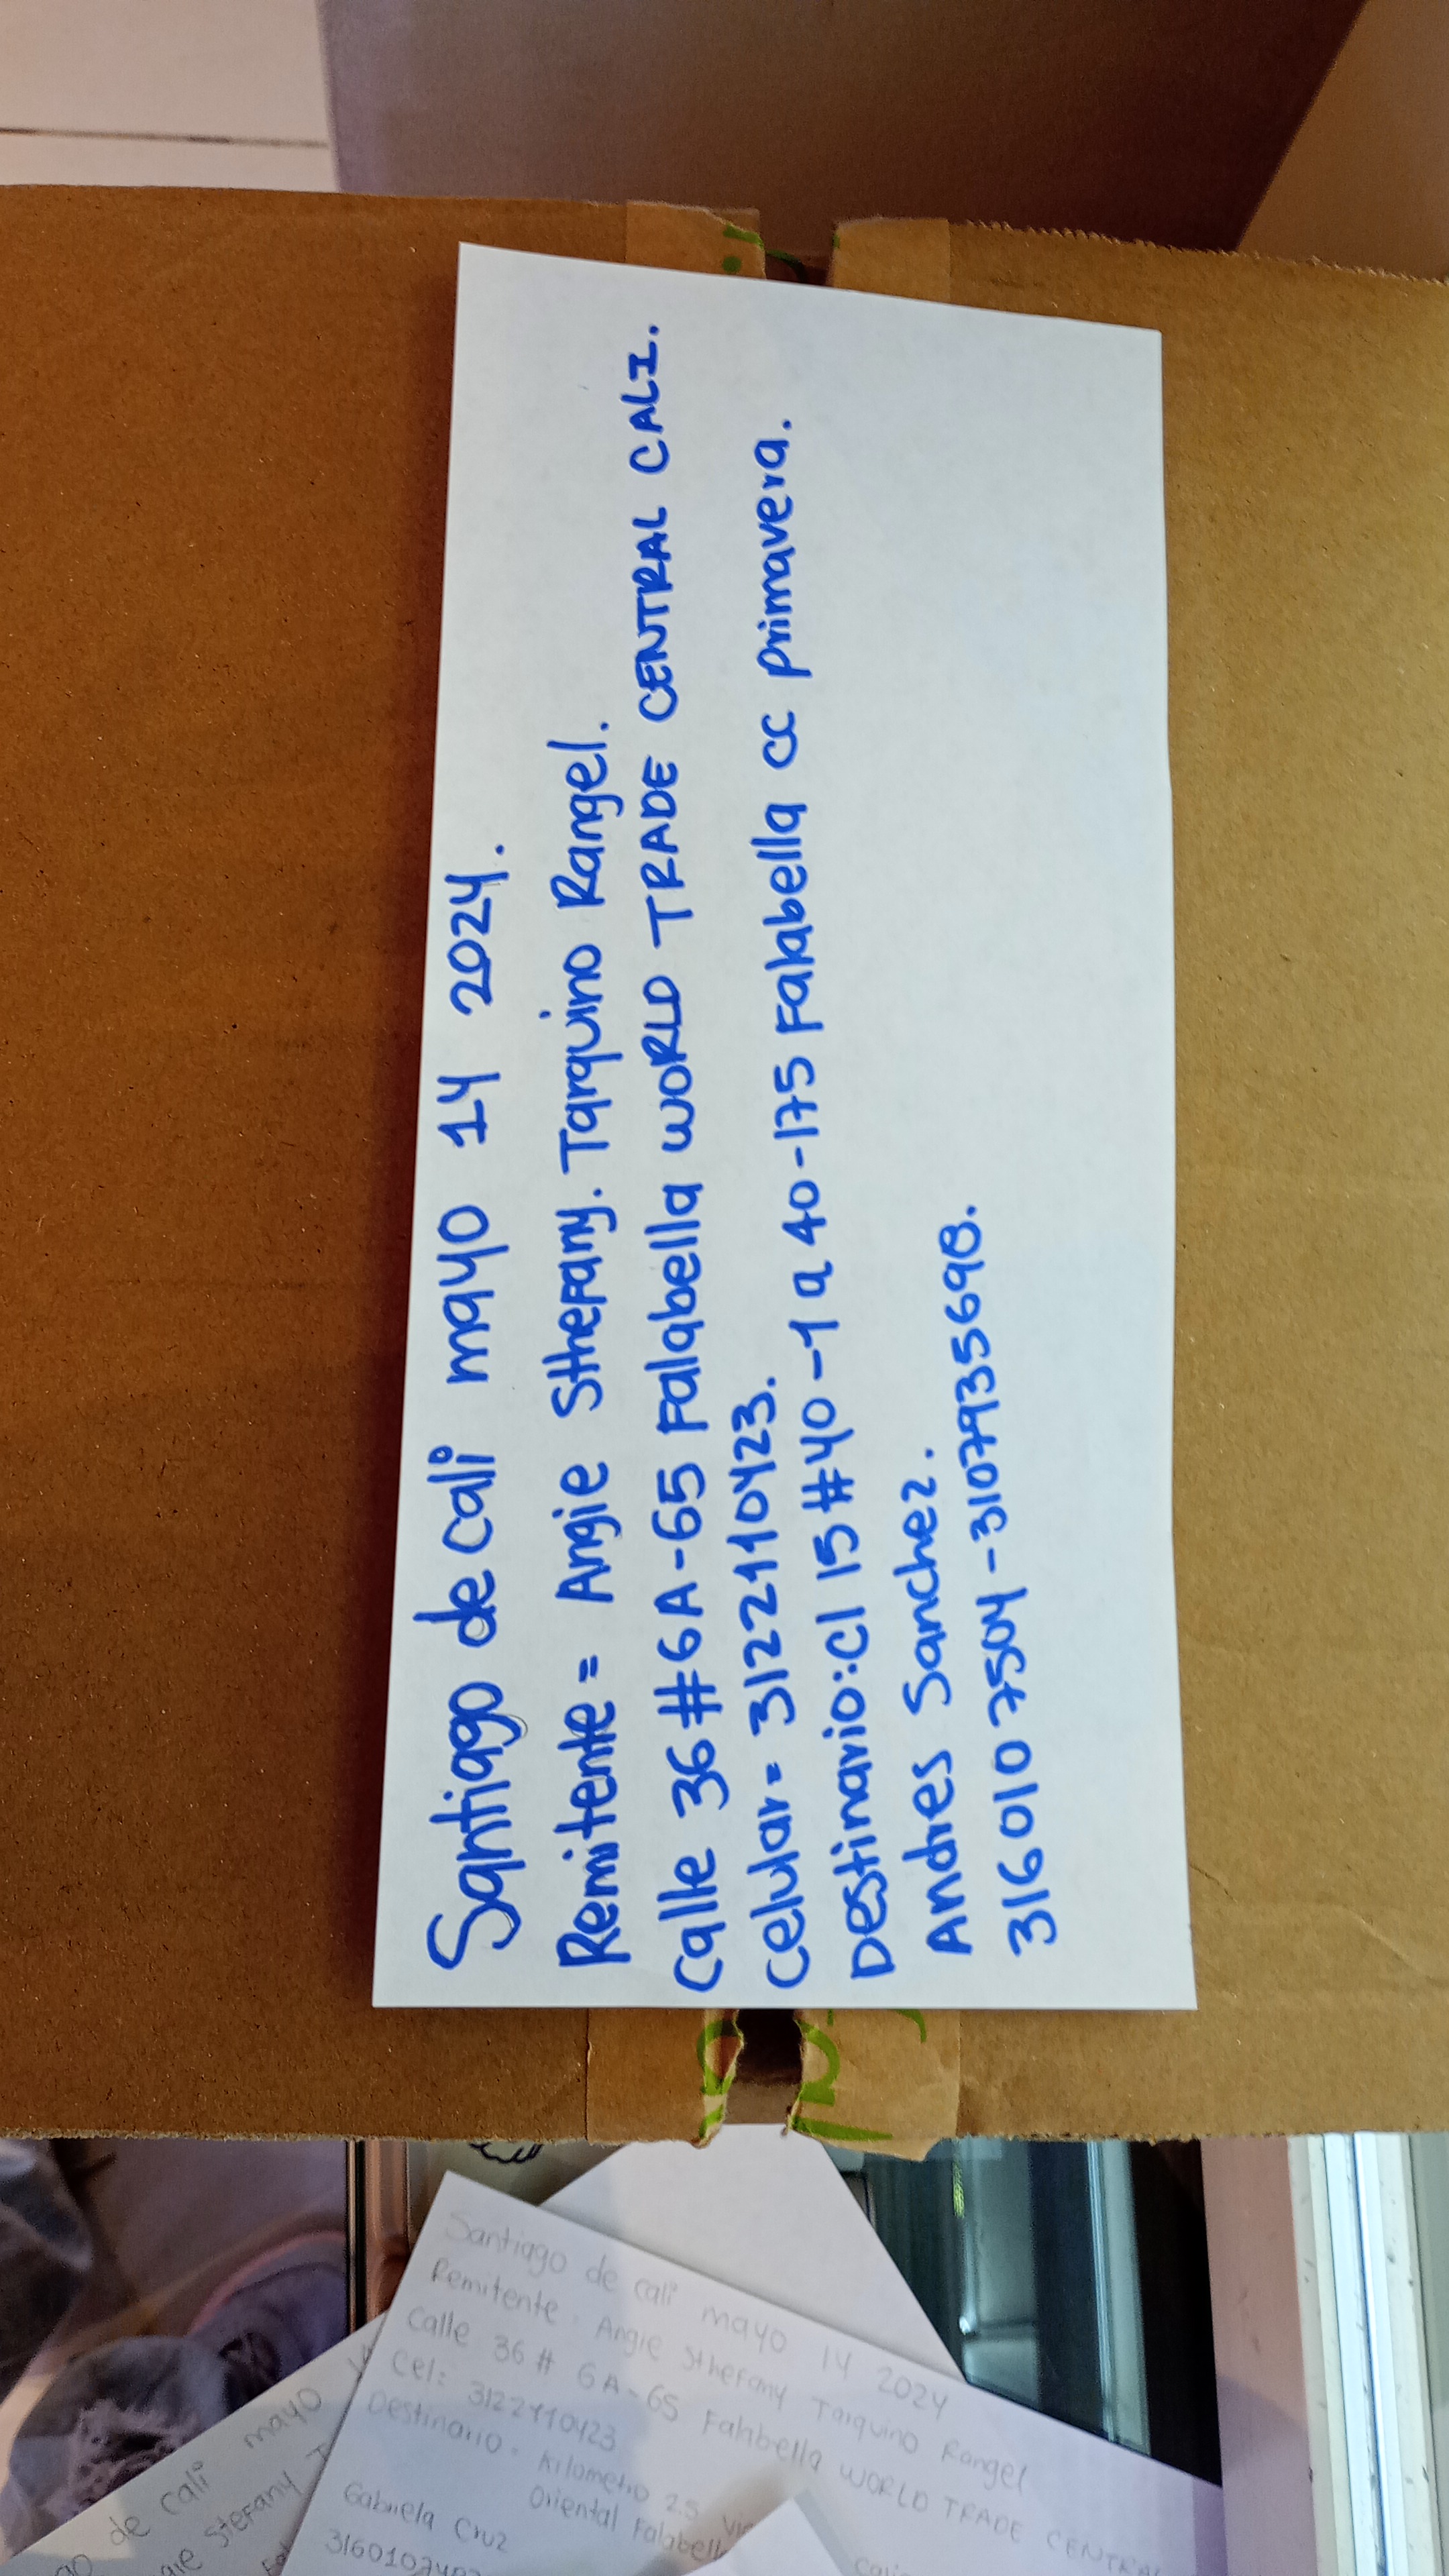 Santiago de cali mayo 14 2024.
Remitente = Angie Sthefany. Tarquino Rangel.
Calle 36 #6A-65 Falabella WORLD TRADE CENTRAL CALI.
Celular = 3122110423.
Destinario: Cl 15 #40-1 a 40-175 Falabella CC primavera.
Andres Sanchez.
316 010 7504 - 3107935698.
Santiago de cali mayo 14 2024
Remitente: Angie Sthefany Tarquino Rangel
Calle 36 # 6A-65 Falabella WORLD TRADE CENTRAL
Cel: 3122110423
Destinario: Kilometro 2.5
Oriental Falabell
Gabriela Cruz
de cali mayo
stefany